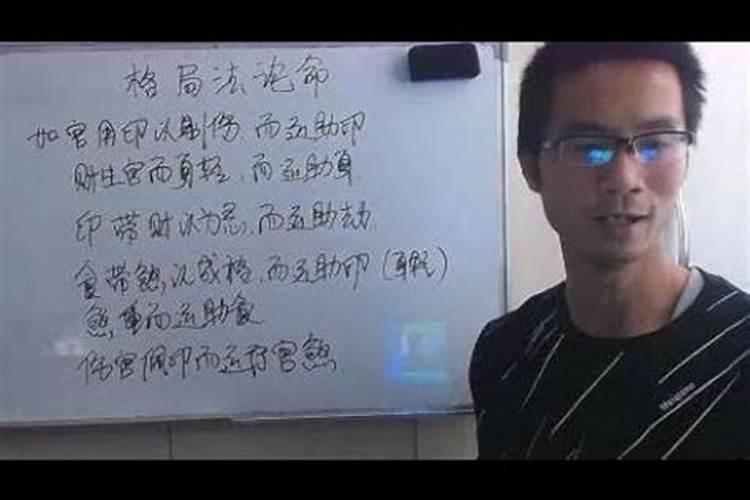 格局法论命
如官用印以制伤,而运助印
财生官而身轻,而运助身
印带财以为忌,而运助劫
食带煞以成格,而运助印(身轻)
煞重而运助食
伤官佩印而运行官煞